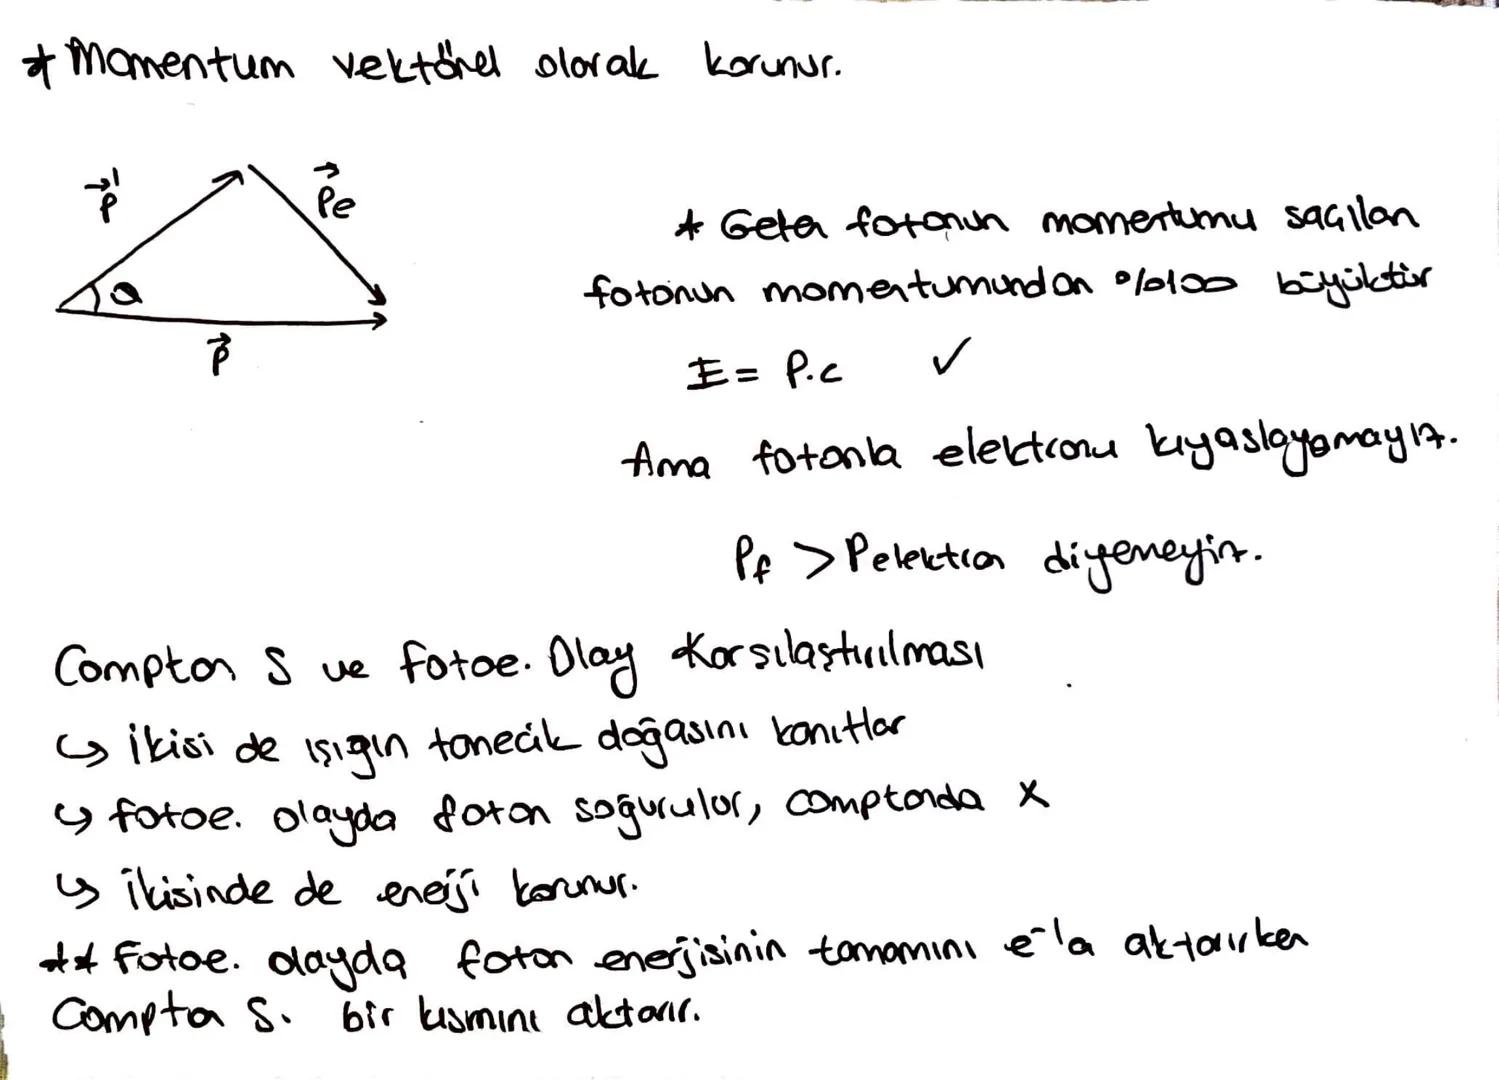 * Momentum vektörel olarak korunur.
→p'
→Pe
a
→p
* Gelen fotonun momentumu saçılan
fotonun momentumundan %100 büyüktür
E = P.c ✓
Ama fotonla elektronu kıyaslayamayız.
Pf > Pelektron diyemeyiz.
Compton S ve fotoe. Olay Karşılaştırılması
↪ İkisi de ışığın tanecik doğasını kanıtlar
↪ fotoe. olayda foton soğurulur, comptonda x
↪ İkisinde de enerji korunur.
** Fotoe. olayda foton enerjisinin tamamını e⁻'la aktarırken
Compton S. bir kısmını aktarır.